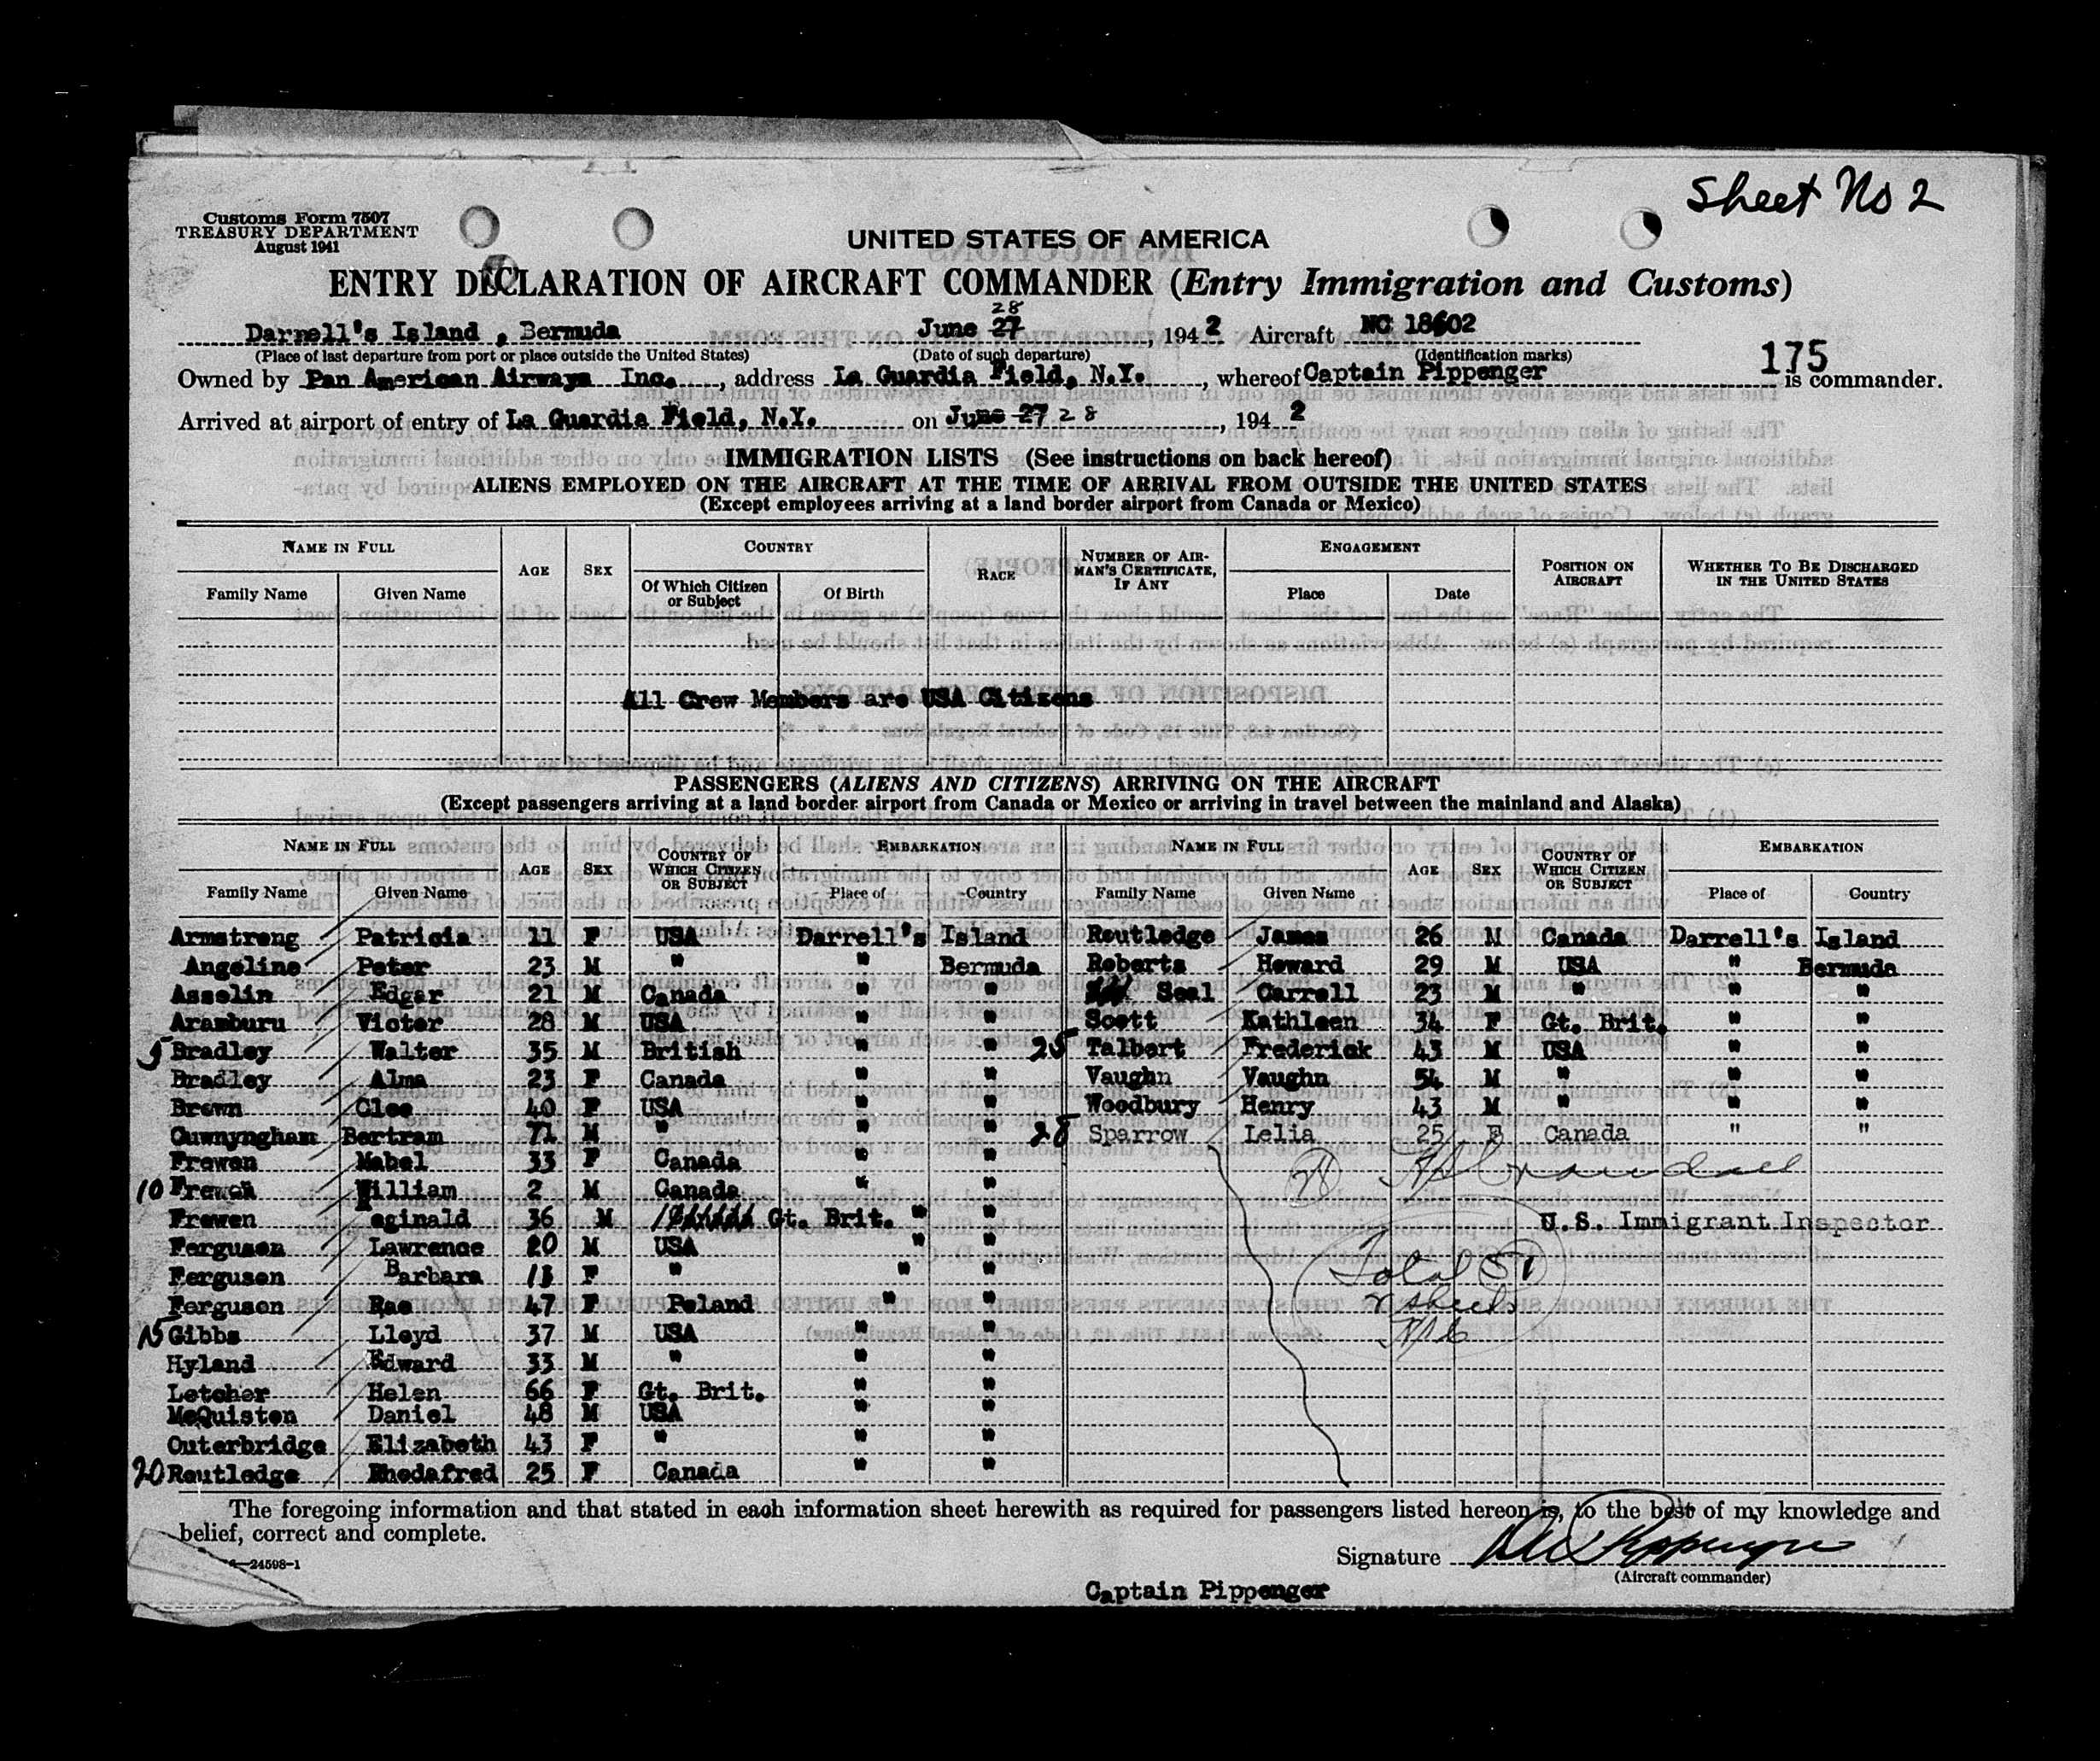 Sheet No 2
Customs Form 7507
TREASURY DEPARTMENT
August 1941
UNITED STATES OF AMERICA
ENTRY DECLARATION OF AIRCRAFT COMMANDER (Entry Immigration and Customs)
28
Darrell's Island , Bermuda June 27 , 194 2 Aircraft NC 18602
(Place of last departure from port or place outside the United States) (Date of such departure) (Identification marks)
175
Owned by Pan American Airways Inc. , address La Guardia Field, N.Y. , whereof Captain Pippenger is commander.
Arrived at airport of entry of La Guardia Field, N.Y. on June 27 28 , 194 2
IMMIGRATION LISTS (See instructions on back hereof)
ALIENS EMPLOYED ON THE AIRCRAFT AT THE TIME OF ARRIVAL FROM OUTSIDE THE UNITED STATES
(Except employees arriving at a land border airport from Canada or Mexico)
NAME IN FULL AGE SEX COUNTRY RACE NUMBER OF AIRMAN'S CERTIFICATE, IF ANY ENGAGEMENT POSITION ON AIRCRAFT WHETHER TO BE DISCHARGED IN THE UNITED STATES
Family Name Given Name Of Which Citizen or Subject Of Birth Place Date
All Crew Members are USA Citizens
PASSENGERS (ALIENS AND CITIZENS) ARRIVING ON THE AIRCRAFT
(Except passengers arriving at a land border airport from Canada or Mexico or arriving in travel between the mainland and Alaska)
NAME IN FULL AGE SEX COUNTRY OF WHICH CITIZEN OR SUBJECT EMBARKATION NAME IN FULL AGE SEX COUNTRY OF WHICH CITIZEN OR SUBJECT EMBARKATION
Family Name Given Name Place of Country Family Name Given Name Place of Country
Armstrong Patricia 11 F USA Darrell's Island Routledge James 26 M Canada Darrell's Island
Angeline Peter 23 M " " Bermuda Roberts Howard 29 M USA " Bermuda
Asselin Edgar 21 M Canada " " Seal Carroll 23 M " " "
Aramburu Victor 28 M USA " " Scott Kathleen 34 F Gt. Brit. " "
5 Bradley Walter 35 M British " " 25 Talbert Frederick 43 M USA " "
Bradley Alma 23 F Canada " " Vaughn Vaughn 54 M " " "
Brown Cleo 40 F USA " " Woodbury Henry 43 M " " "
Cuwnyngham Bertram 71 M " " " 28 Sparrow Lelia 25 F Canada " "
Frewen Mabel 33 F Canada " "
10 Frewen William 2 M Canada " "
Frewen eginald 36 M Gt. Brit. " "
U.S. Immigrant Inspector
Ferguson Lawrence 20 M USA " "
Ferguson Barbara 13 F " " "
Total 51
Ferguson Rae 47 F Poland " "
2 sheets
15 Gibbs Lloyd 37 M USA " "
Hyland Edward 33 M " " "
Letcher Helen 66 F Gt. Brit. " "
McQuisten Daniel 48 M USA " "
Outerbridge Elizabeth 43 F " " "
20 Routledge Rhodafred 25 F Canada " "
The foregoing information and that stated in each information sheet herewith as required for passengers listed hereon is, to the best of my knowledge and
belief, correct and complete.
24598-1
Signature
(Aircraft commander)
Captain Pippenger